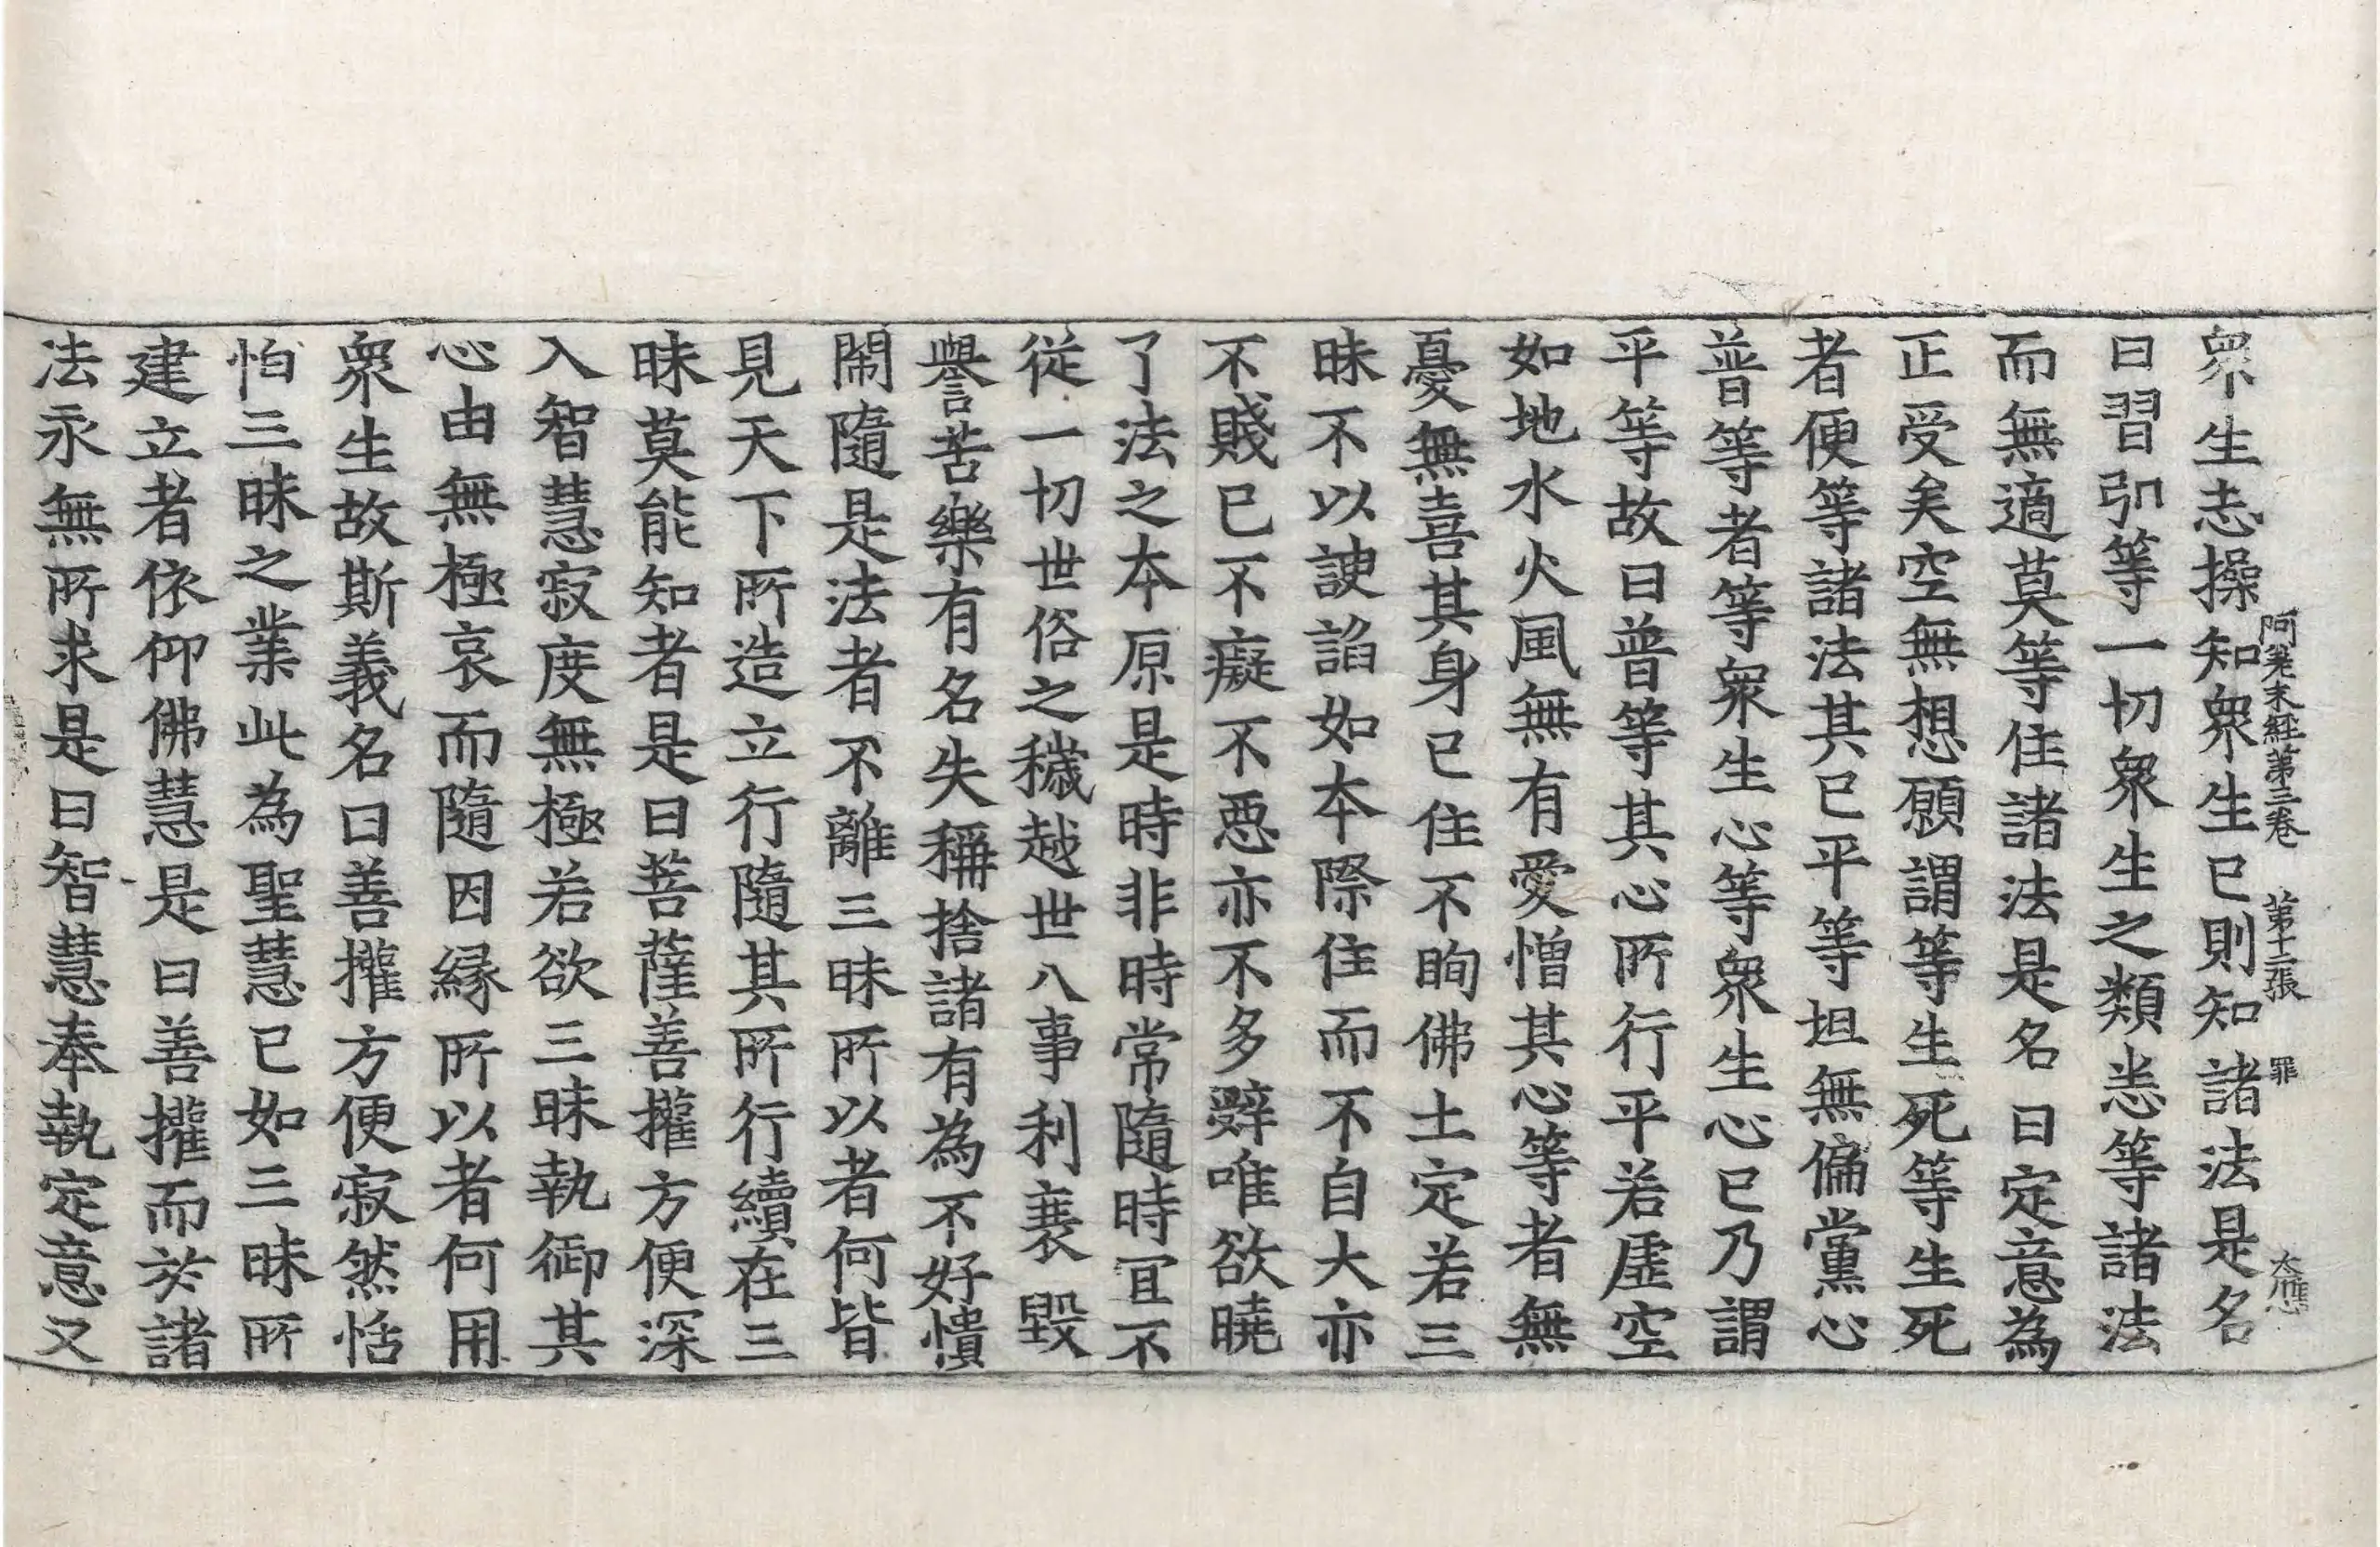 阿差末經第三卷 第十二張 罪
衆生志操知衆生已則知諸法是名
曰習引等一切衆生之類悉等諸法
而無適莫等住諸法是名曰定意為
正受矣空無想願謂等生死等生死
者便等諸法其已平等坦無偏黨心
普等者等衆生心等衆生心已乃謂
平等故曰普等其心所行平若虛空
如地水火風無有愛憎其心等者無
憂無喜其身已住不眴佛土定若三
昧不以諛諂如本際住而不自大亦
不賤已不癡不惡亦不多辭唯欲曉
了法之本原是時非時常隨時宜不
從一切世俗之穢越世八事利衰毀
譽苦樂有名失稱捨諸有為不好憒
閙隨是法者不離三昧所以者何皆
見天下所造立行隨其所行續在三
昧莫能知者是曰菩薩善權方便深
入智慧寂度無極若欲三昧執御其
心由無極哀而隨因緣所以者何用
衆生故斯義名曰善權方便寂然恬
怕三昧之業此為聖慧已如三昧所
建立者依仰佛慧是曰善權而於諸
法永無所求是曰智慧奉執定意又